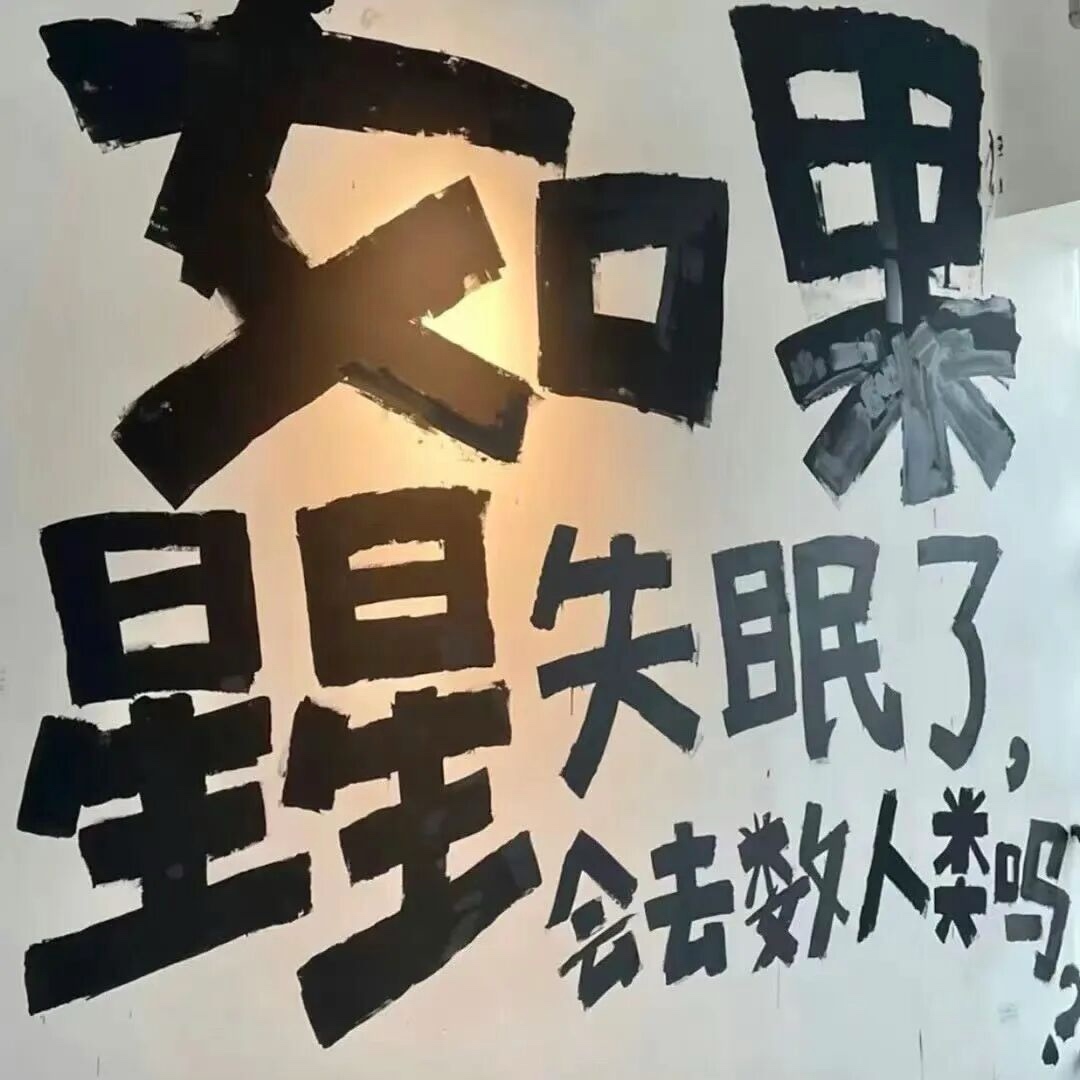 如果
星星失眠了,
会去数人类吗?